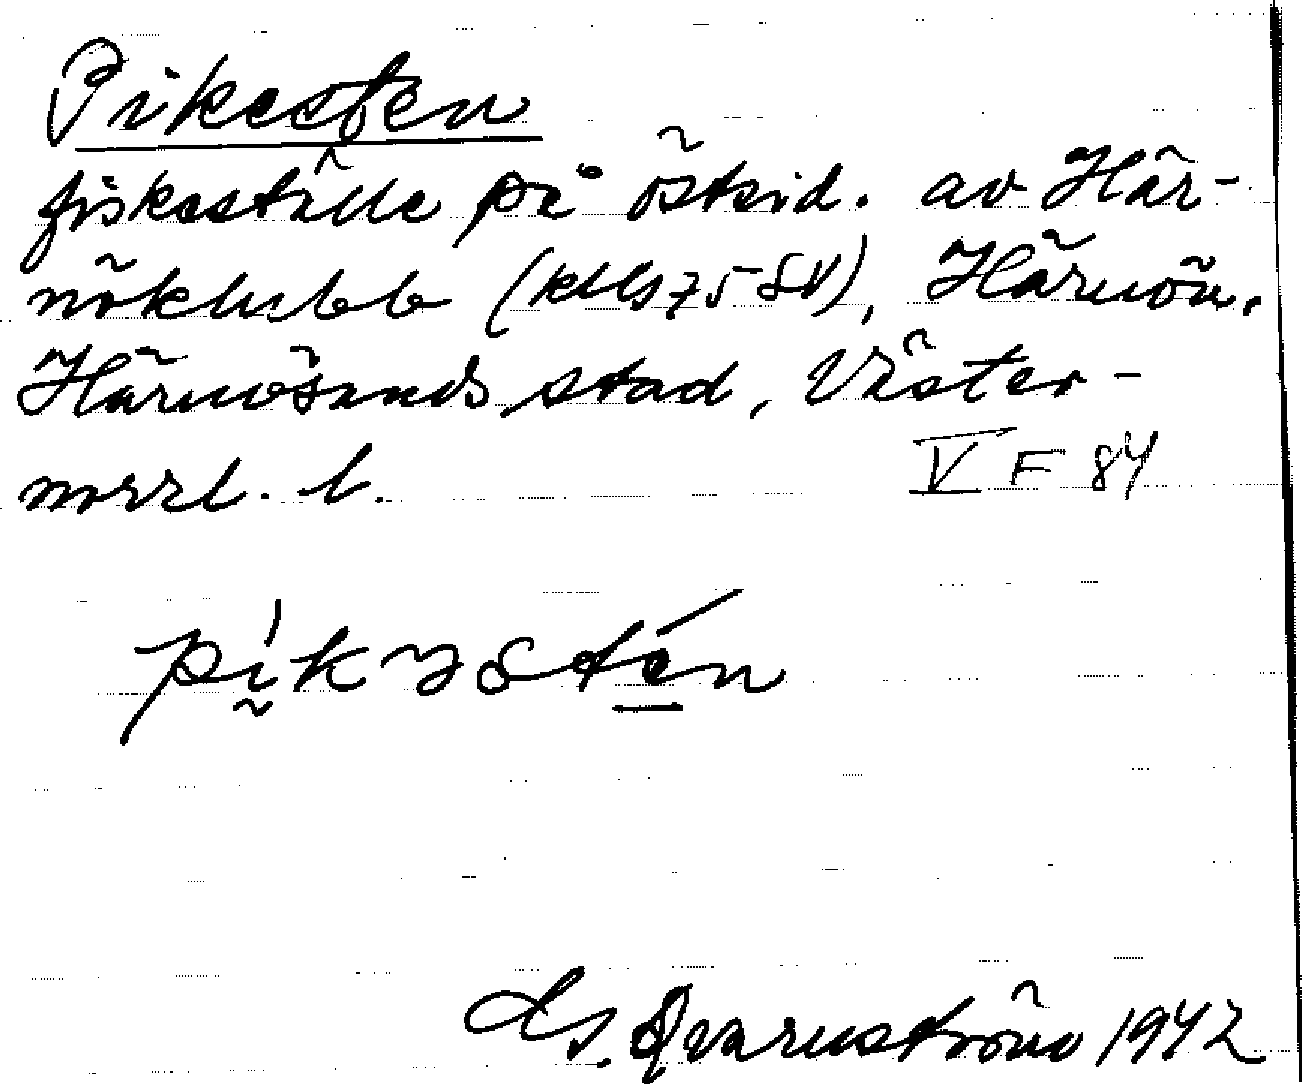 Pikesten
fiskeställe på östsid. av Här-
nöklubb (kbl 75 SV), Härnön,
Härnösands stad, Väster-
norrl. l. V F 84
pikəstén
Qvarnström 1942